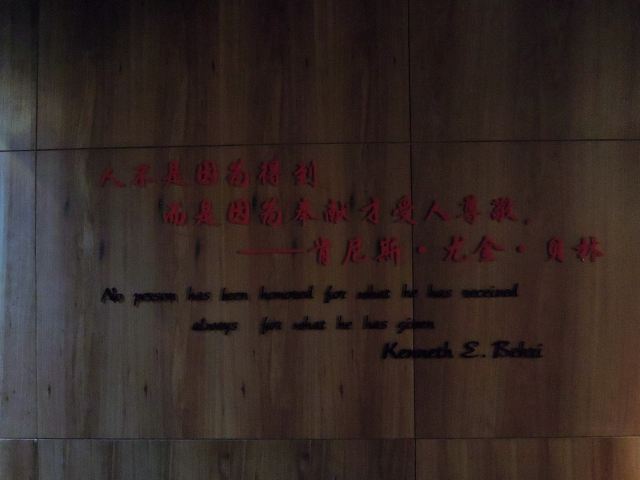 人不是因为得到
而是因为奉献才受人尊敬,
——肯尼斯·尤金·贝林
No person has been honored for what he has received
always for what he has given
Kenneth E. Behri